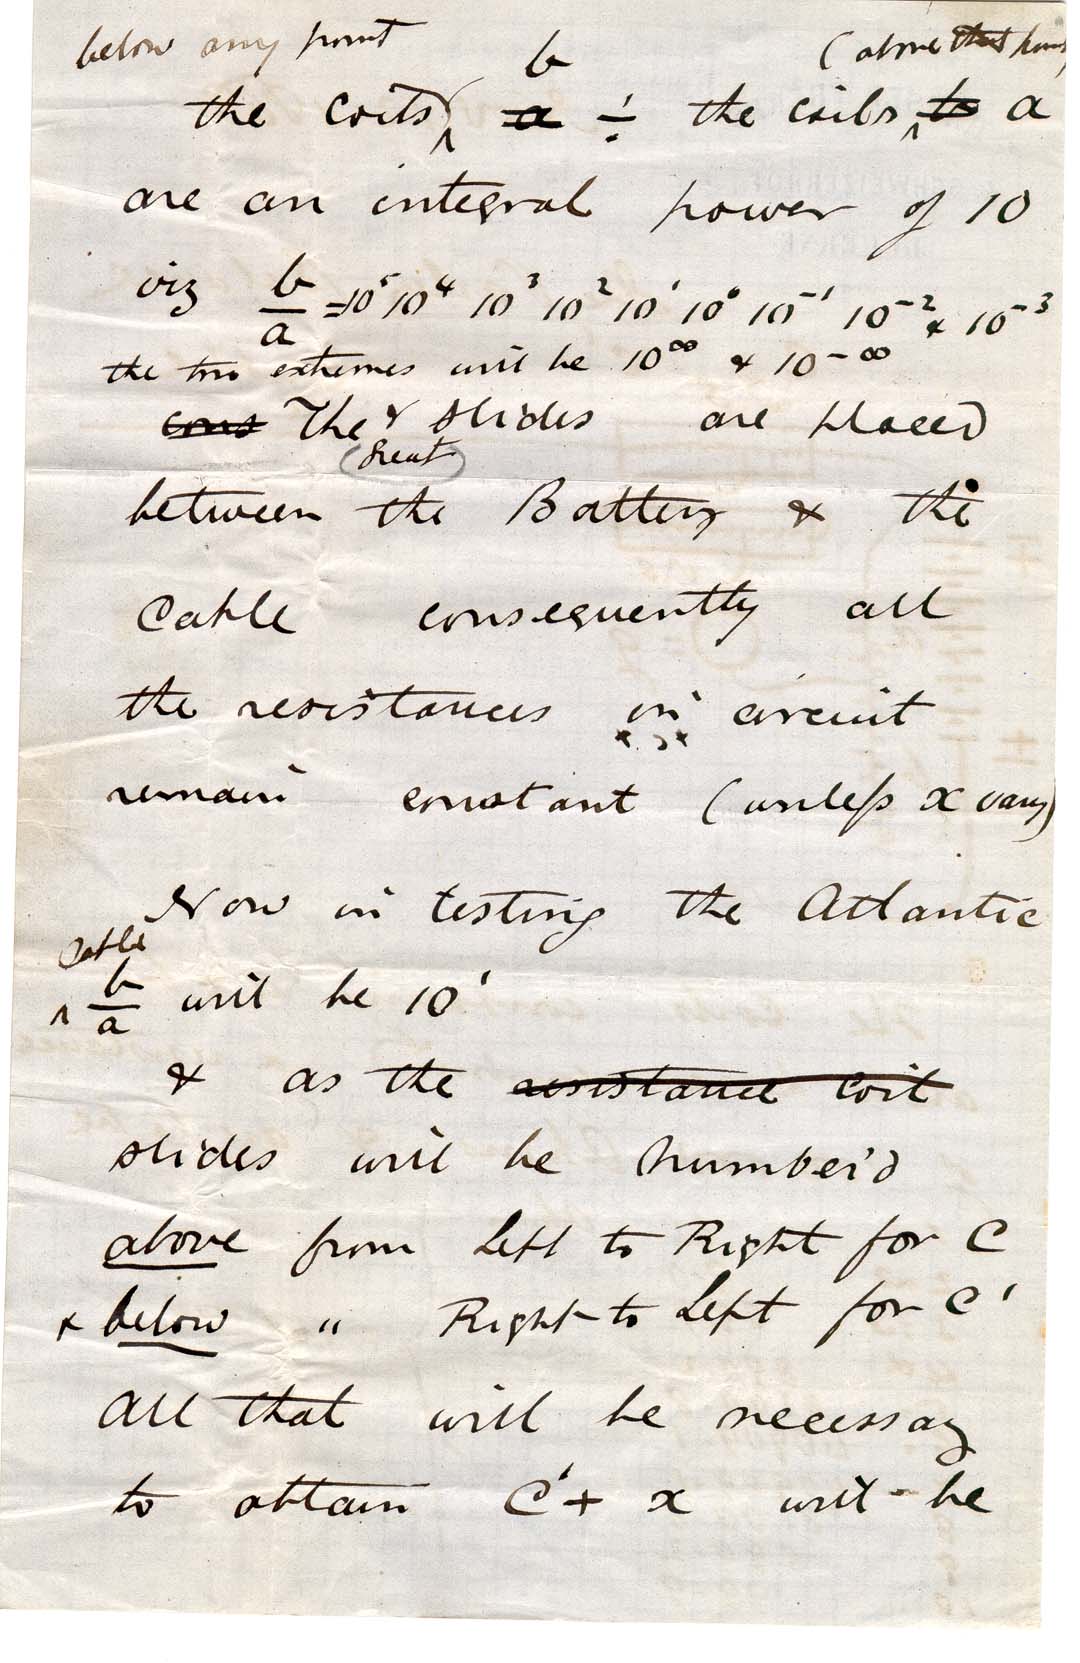 below any point (above that point
the coils b a ÷ the coils to a
are an integral power of 10
viz b/a = 10⁵ 10⁴ 10³ 10² 10¹ 10⁰ 10⁻¹ 10⁻² & 10⁻³
the two extremes will be 10^∞ & 10^-∞
cons The & slides are placed
(
between the Battery & the
Cable consequently all
the resistances in circuit
remain constant (unless x vary)
Now in testing the Atlantic
Cable
b/a will be 10¹
& as the resistance coil
slides will be number'd
above from Left to Right for C
& below " Right to Left for C'
All that will be necessary
to obtain C' + x will be